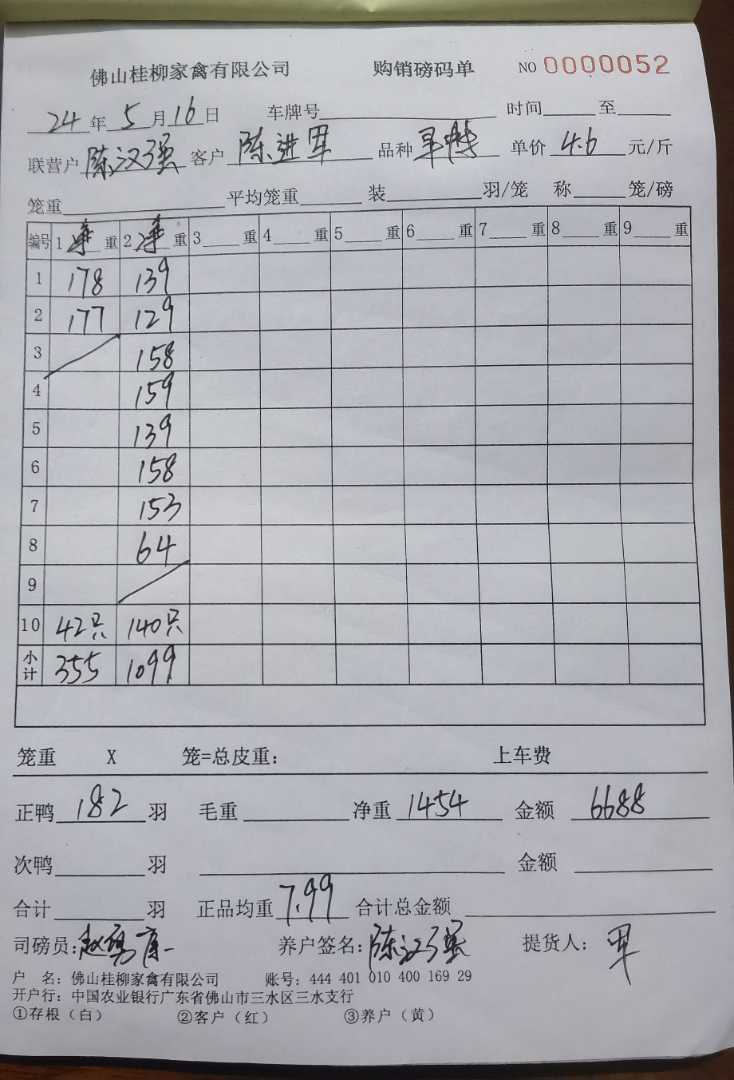 佛山桂柳家禽有限公司 购销磅码单 NO 0000052
24年5月16日 车牌号 时间 至
联营户 陈汉强 客户 陈进军 品种 单价 4.6 元/斤
笼重 平均笼重 装 羽/笼 称 笼/磅
编号 1 净 重 2 净 重 3 重 4 重 5 重 6 重 7 重 8 重 9 重
1 178 139
2 177 129
3 158
4 159
5 139
6 158
7 153
8 64
9
10 42只 140只
小计 355 1099
笼重 X 笼=总皮重: 上车费
正鸭 182 羽 毛重 净重 1454 金额 6688
次鸭 羽 金额
合计 羽 正品均重 7.99 合计总金额
司磅员: 养户签名: 陈汉强 提货人: 军
户 名: 佛山桂柳家禽有限公司 账号: 444 401 010 400 169 29
开户行: 中国农业银行广东省佛山市三水区三水支行
①存根(白) ②客户(红) ③养户(黄)